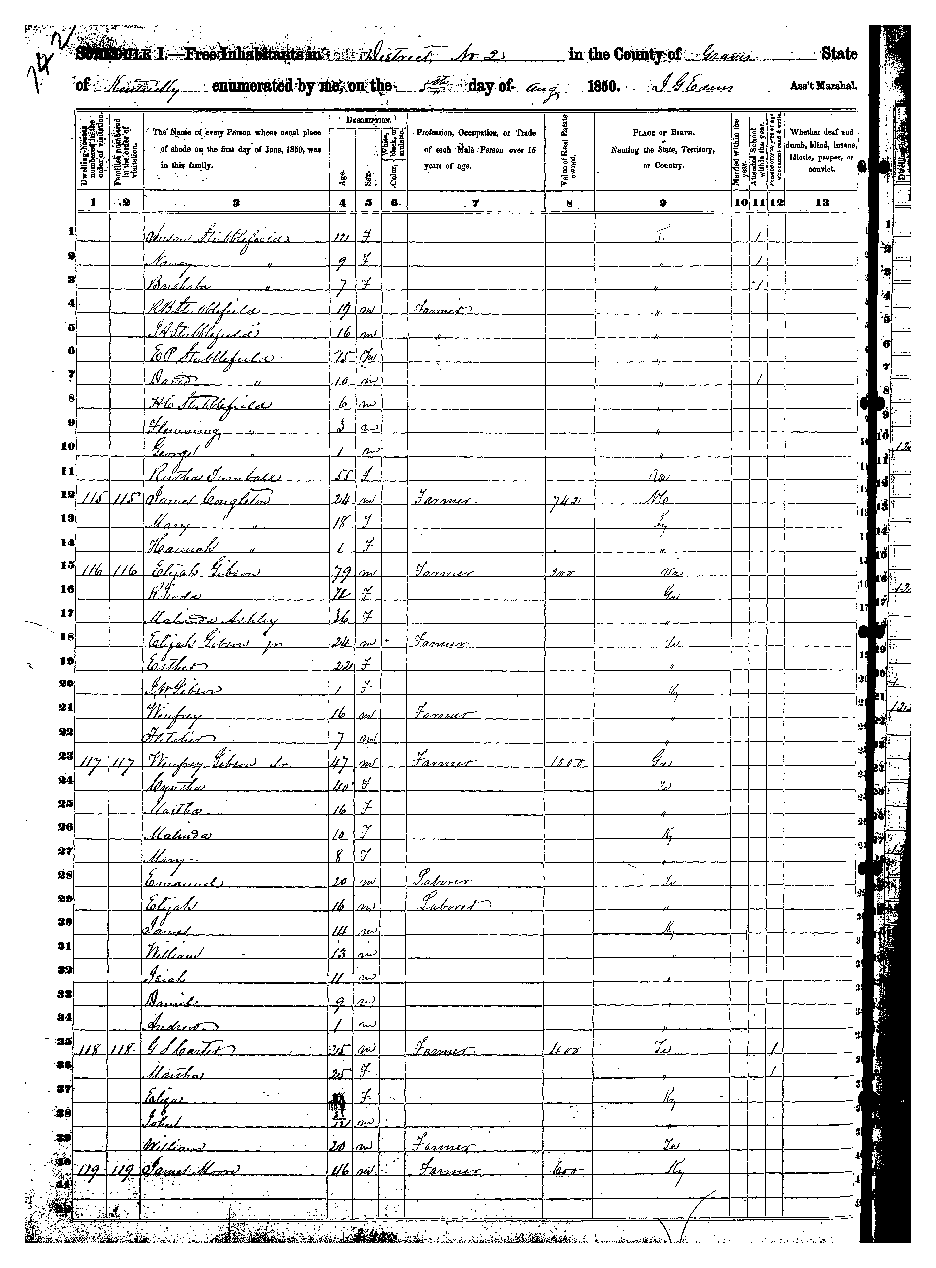 SCHEDULE I.—Free Inhabitants in District No 2 in the County of Graves State
of Kentucky enumerated by me, on the 5th day of Aug 1850. J G Evans Ass't Marshal.
Dwelling-houses numbered in the order of visitation. Families numbered in the order of visitation. The Name of every Person whose usual place of abode on the first day of June, 1850, was in this family. DESCRIPTION. Age. Sex. Color, White, black, or mulatto. Profession, Occupation, or Trade of each Male Person over 15 years of age. Value of Real Estate owned. PLACE OF BIRTH. Naming the State, Territory, or Country. Married within the year. Attended School within the year. Whether deaf and dumb, blind, insane, idiotic, pauper, or convict.
1 2 3 4 5 6 7 8 9 10 11 12 13
1 Stubblefield F 1
2 Nancy " 9 F " 1
3 " 7 F " 1
4 R B Stubblefield 19 m Farmer "
5 J A Stubblefield 16 m " "
6 E P Stubblefield 15 m "
7 David " 10 m " 1
8 H C Stubblefield 6 m "
9 Flemming " 3 m "
10 George " 1 m "
11 Turnbull 55 F
12 115 115 James Congleton 24 m Farmer 742 NC
13 Mary " 18 F Ky
14 Hannah " 1 F "
15 116 116 Elijah Gibson 79 m Farmer 200 Va
16 Rhoda F Ga
17 Malinda Ashley 36 F
18 Elijah Gibson jr 24 m Farmer Te
19 Esther 22 F "
20 J W Gibson 1 F Ky
21 Winfrey 16 m Farmer "
22 Fletcher 7 m "
23 117 117 Winfrey Gibson Sr 47 m Farmer 1500 Ga
24 Cyntha 40 F Te
25 Martha 16 F "
26 Malinda 10 F Ky
27 Mary 8 F "
28 Emanuel 20 m Laborer Te
29 Elijah 16 m Laborer "
30 James 14 m Ky
31 William 13 m "
32 Isiah 11 m "
33 Daniel 9 m "
34 Andrew 1 m "
35 118 118 G S Carter 25 m Farmer 400 Te 1
36 Martha 25 F " 1
37 Eliza F Ky
38 John m "
39 William 20 m Farmer Te
40 119 119 James Moore 46 m Farmer 600 Ky
41